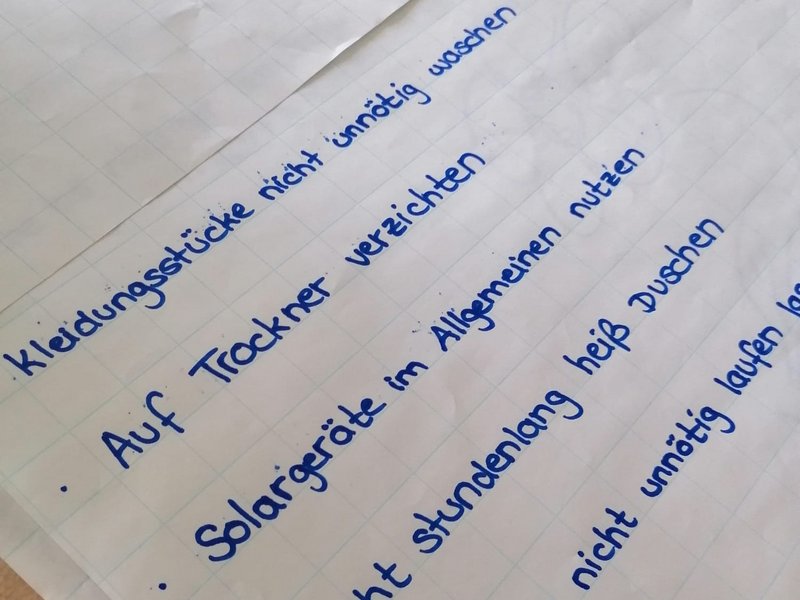 Kleidungsstücke nicht unnötig waschen
• Auf Trockner verzichten
• Solargeräte im Allgemeinen nutzen
stundenlang heiß Duschen
nicht unnötig laufen